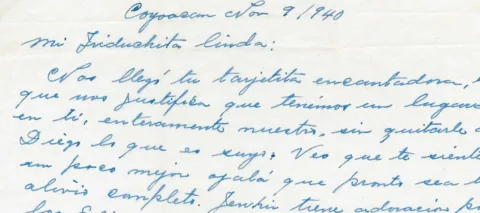 Coyoacan Nov 9/1940
Mi Friduchita linda:
Nos llegó tu tarjetita encantadora,
que nos justifica que tenemos un lugar
en ti, enteramente nuestro, sin quitarle a
Diego lo que es suyo. Veo que te siente
un poco mejor ojalá que pronto sea
alivio completo. tiene adoración